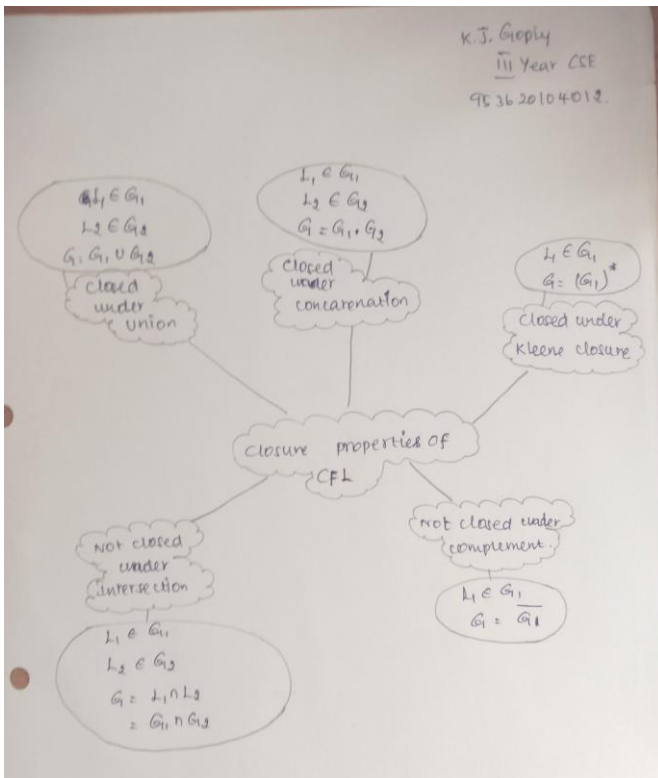 K.J. Goply
III Year CSE
953620104012.
L1 ∈ G1
L2 ∈ G2
G = G1 ∪ G2
closed
under
union
L1 ∈ G1
L2 ∈ G2
G = G1 • G2
closed
under
concarenation
L1 ∈ G1
G = (G1)*
closed under
Kleene closure
closure properties of
CFL
Not closed
under
intersection
L1 ∈ G1
L2 ∈ G2
G = L1 ∩ L2
= G1 ∩ G2
Not closed under
complement.
L1 ∈ G1
G = G̅1̅